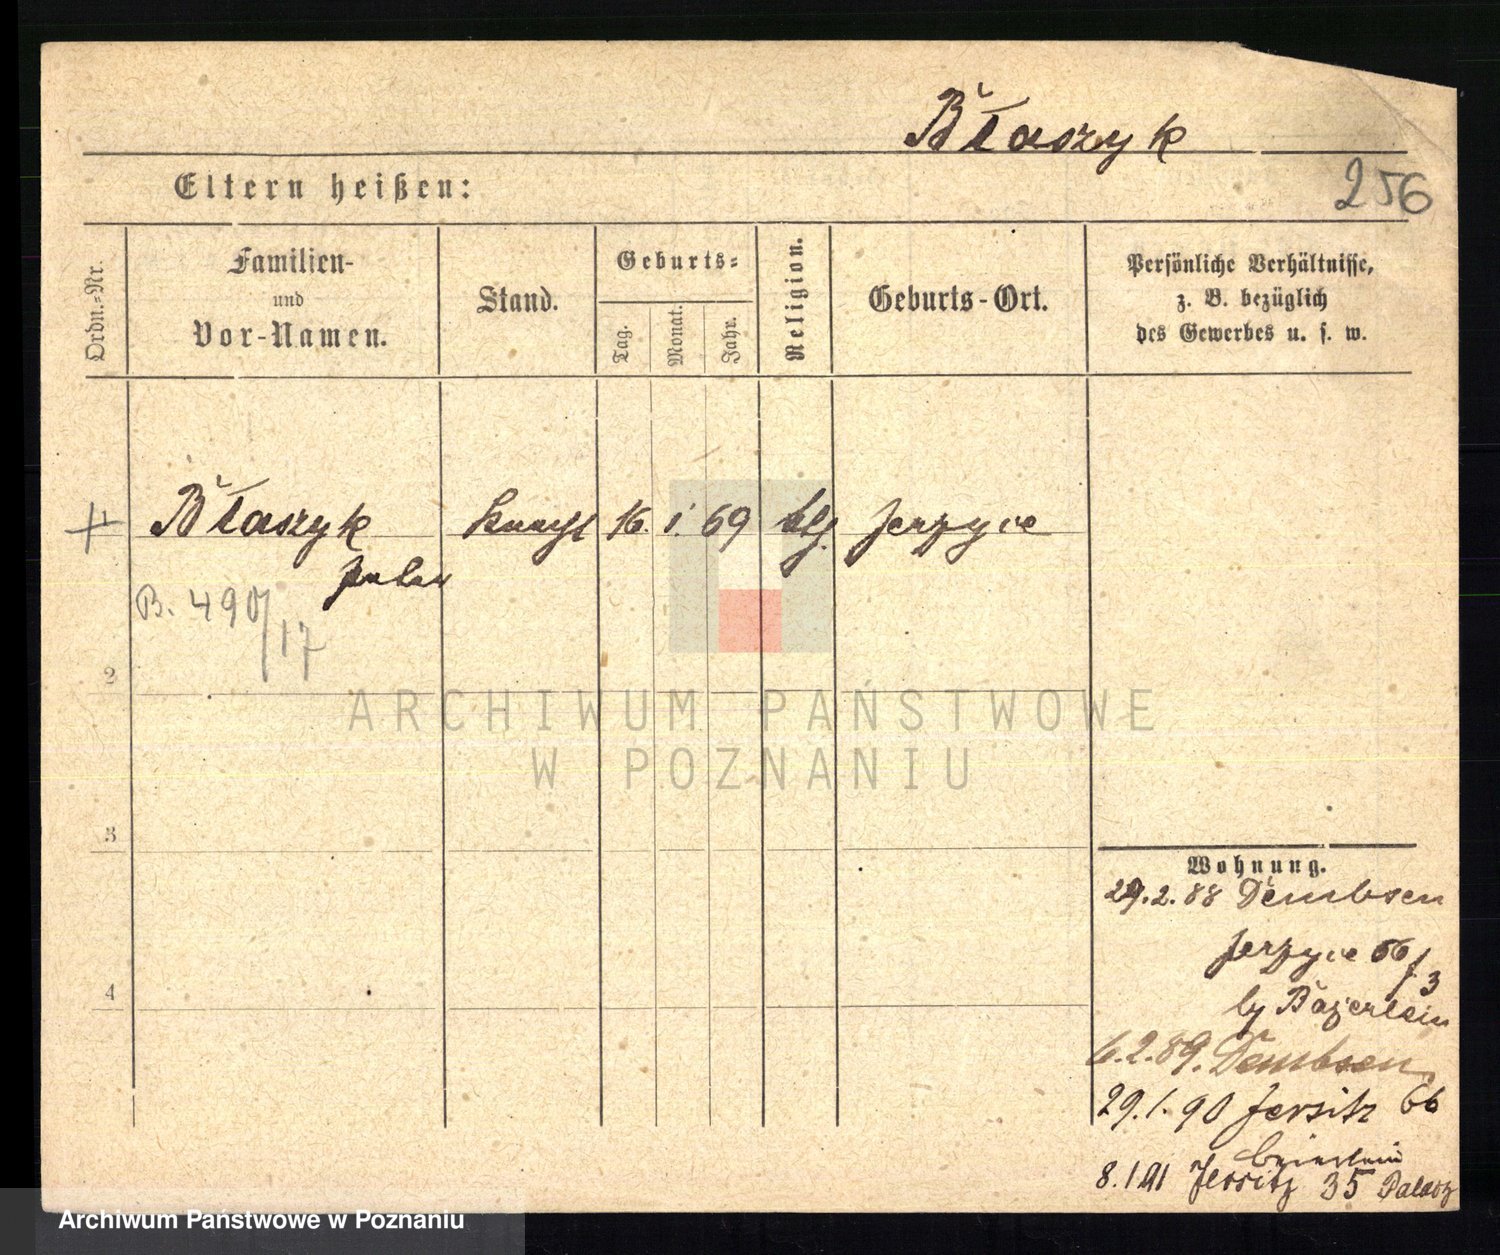 Błaszyk
256
Eltern heißen:
Ordn.-Nr.
Familien-
und
Vor-Namen.
Stand.
Geburts-
Tag.
Monat.
Jahr.
Religion.
Geburts-Ort.
Persönliche Verhältnisse,
z. B. bezüglich
des Gewerbes u. s. w.
1 Błaszyk Knecht 16. 1. 69 Jerzyce
B. 490/17
2
ARCHIWUM PAŃSTWOWE
W POZNANIU
3
4
Wohnung.
29.2.88 Dembsen
Jerzyce 66/3
by Bajerlein
6.2.89. Dembsen
29.1.90 Jersitz 66
Beierlein
8.1.91 Jersitz 35 Palacz
Archiwum Państwowe w Poznaniu